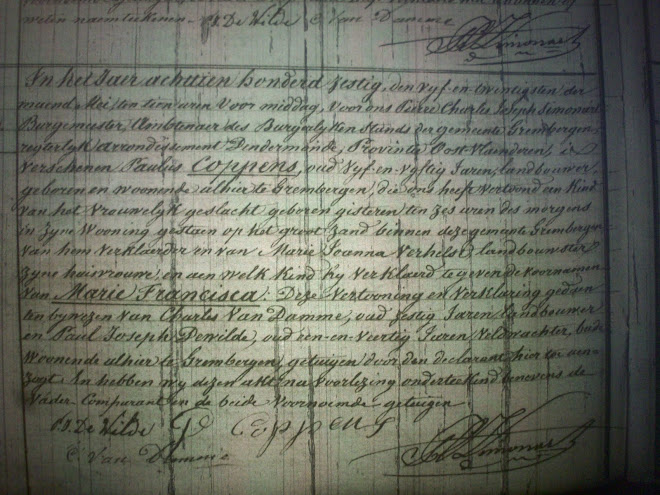 weten naamteekenen. P.J. De Wilde C Van Damme
Simonart
In het Jaer achttien honderd zestig, den vyf-en-twentigsten der
maend Mei, ten tien uren voor middag, voor ons Pierre Charles Joseph Simonart
Burgemeester, Ambtenaer des Burgerlyken Stands der gemeente Grembergen,
regterlyk arrondissement Dendermonde, Provintie Oost-Vlaenderen, is
verschenen Paulus Coppens, oud vyf-en-vyftig Jaren, landbouwer,
geboren en woonende alhier te Grembergen, die ons heeft vertoond een Kind
van het vrouwelyk geslacht geboren gisteren ten zes uren des morgens
in zyne wooning gestaen op het groot zand binnen deze gemeente Grembergen
van hem verklaerder en van Marie Joanna Verhelst, landbouwster
zyne huisvrouwe, en aen welk Kind hy verklaerd te geven de voornamen
van Marie Francisca. Deze vertooning en verklaring gedaen
ten bywezen van Charles Van Damme, oud zestig Jaren, landbouwer
en Paul Joseph Dewilde, oud een-en-veertig Jaren, veldwachter, beide
woonende alhier te Grembergen, getuigen door den declarant hier toe aen-
zogt. En hebben wy dezen akt, na voorlezing onderteekend benevens de
vader Comparant en de beide voornoemde getuigen.
P.J. De Wilde Coppens
C Van Damme Simonart